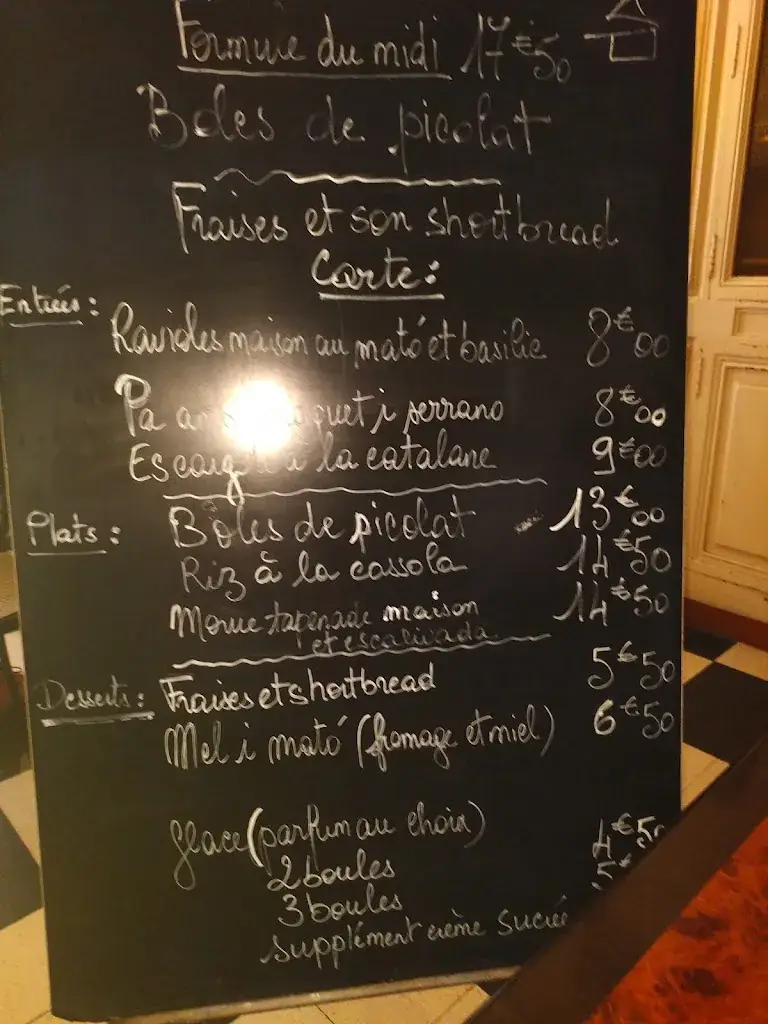 Formule du midi 17€50
Boles de picolat
Fraises et son shortbread
Carte:
Entrées:
Ravioles maison au mató et basilic 8€00
Pa i serrano 8€00
à la catalane 9€00
Plats: Boles de picolat 13€00
Riz à la cassola 14€50
Morue tapenade maison 14€50
et escalivada
Desserts: Fraises et shortbread 5€50
Mel i mató (fromage et miel) 6€50
glace (parfum au choix)
2 boules 4€50
3 boules 5€
supplément crème sucrée